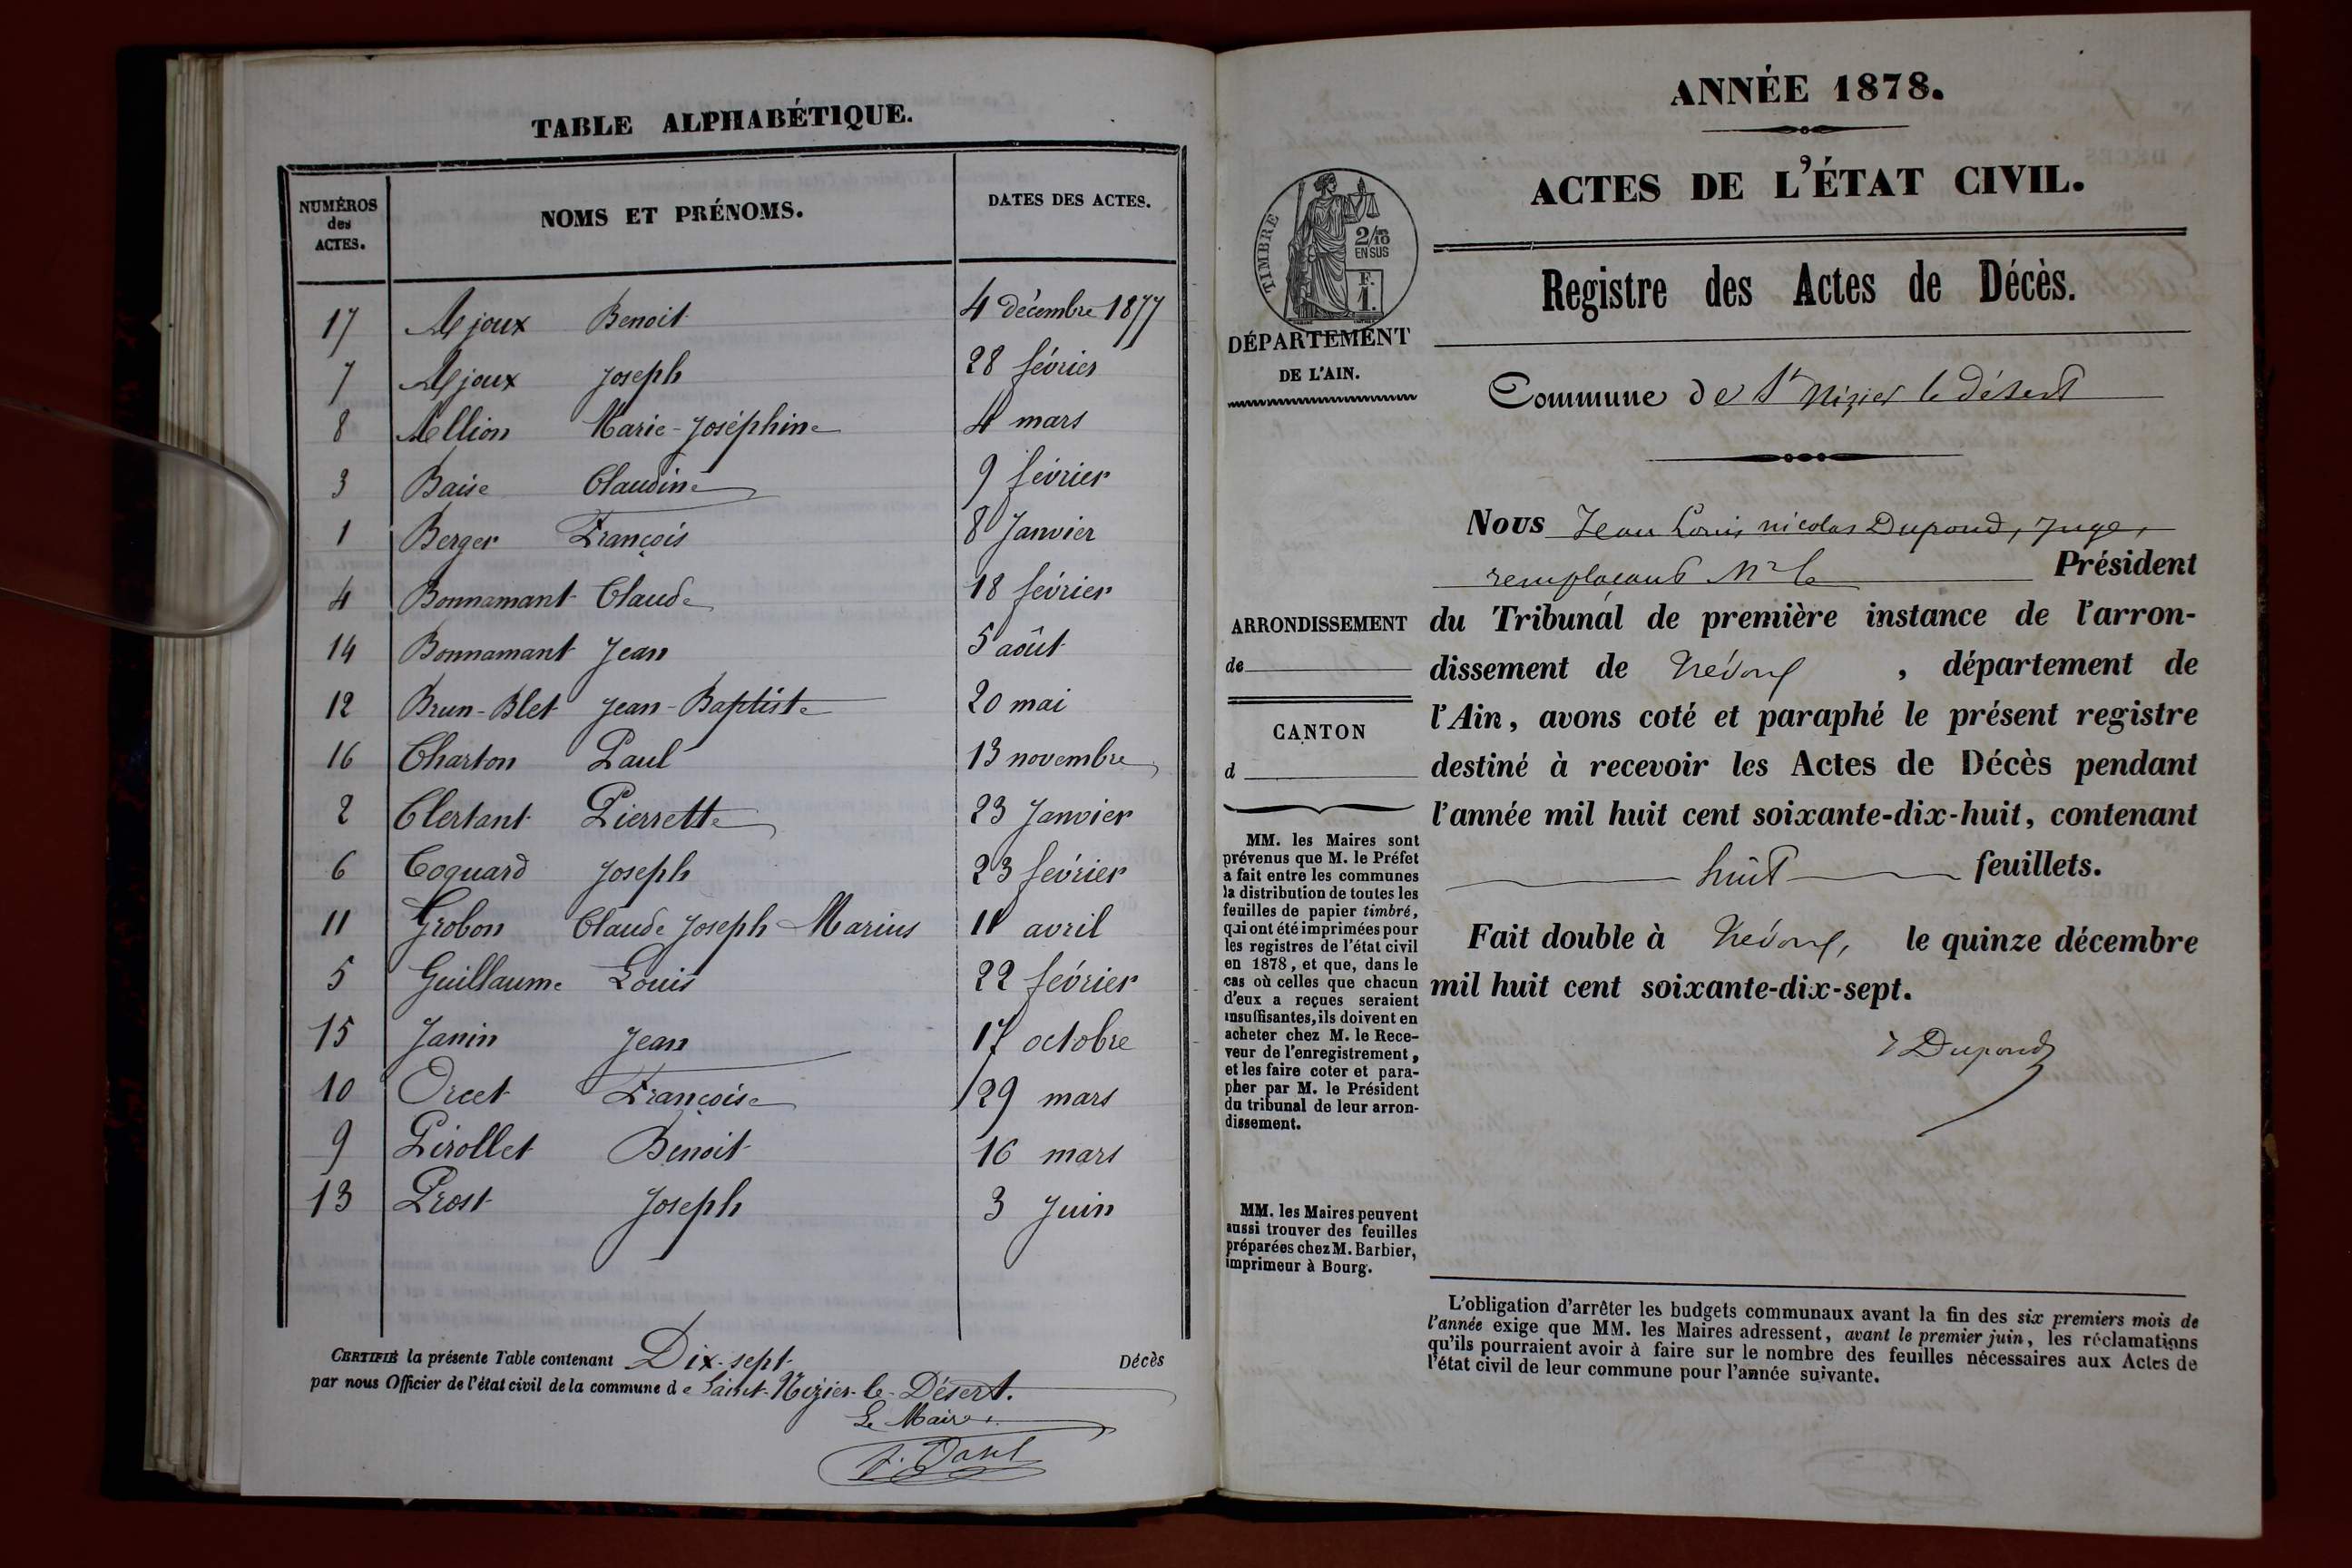 TABLE ALPHABÉTIQUE.
NUMÉROS des ACTES. NOMS ET PRÉNOMS. DATES DES ACTES.
17 Ajoux Benoit 4 décembre 1877
7 Ajoux Joseph 28 février
8 Allion Marie-Joséphine 4 mars
3 Baise Claudine 9 février
1 Berger François 8 Janvier
4 Bonnamant Claude 18 février
14 Bonnamant Jean 5 août
12 Brun-Blet Jean-Baptiste 20 mai
16 Charton Paul 13 novembre
2 Clertant Pierrette 23 Janvier
6 Coquard Joseph 23 février
11 Grobon Claude Joseph Marius 11 avril
5 Guillaume Louis 22 février
15 Janin Jean 17 octobre
10 Orcet Françoise 29 mars
9 Pirollet Benoit 16 mars
13 Prost Joseph 3 Juin
CERTIFIÉ la présente Table contenant Dix-sept Décès
par nous Officier de l'état civil de la commune de Saint-Nizier-le-Désert.
Le Maire
ANNÉE 1878.
ACTES DE L'ÉTAT CIVIL.
TIMBRE
2/10
EN SUS
F.
1.
DÉPARTEMENT
DE L'AIN.
Registre des Actes de Décès.
Commune de St Nizier le désert
Nous Jean Louis nicolas Dupond, Juge,
remplaçant Mr le Président
du Tribunal de première instance de l'arron-
dissement de Trévoux, département de
l'Ain, avons coté et paraphé le présent registre
destiné à recevoir les Actes de Décès pendant
l'année mil huit cent soixante-dix-huit, contenant
huit feuillets.
Fait double à Trévoux, le quinze décembre
mil huit cent soixante-dix-sept.
Dupond
ARRONDISSEMENT
de
CANTON
d
MM. les Maires sont
prévenus que M. le Préfet
a fait entre les communes
la distribution de toutes les
feuilles de papier timbré,
qui ont été imprimées pour
les registres de l'état civil
en 1878, et que, dans le
cas où celles que chacun
d'eux a reçues seraient
insuffisantes, ils doivent en
acheter chez M. le Rece-
veur de l'enregistrement,
et les faire coter et para-
pher par M. le Président
du tribunal de leur arron-
dissement.
MM. les Maires peuvent
aussi trouver des feuilles
préparées chez M. Barbier,
imprimeur à Bourg.
L'obligation d'arrêter les budgets communaux avant la fin des six premiers mois de
l'année exige que MM. les Maires adressent, avant le premier juin, les réclamations
qu'ils pourraient avoir à faire sur le nombre des feuilles nécessaires aux Actes de
l'état civil de leur commune pour l'année suivante.